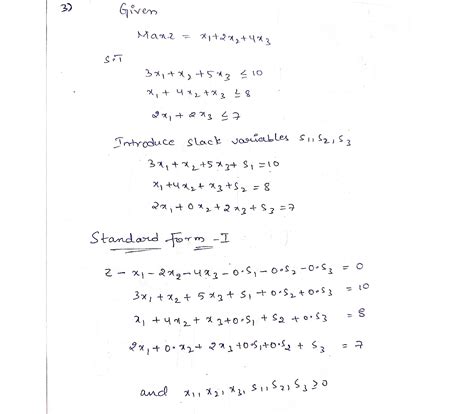 3) Given
Max Z = x₁+2x₂+4x₃
S.T
3x₁+x₂+5x₃ ≤ 10
x₁+4x₂+x₃ ≤ 8
2x₁+2x₃ ≤ 7
Introduce slack variables S₁,S₂,S₃
3x₁+x₂+5x₃+S₁=10
x₁+4x₂+x₃+S₂=8
2x₁+0x₂+2x₃+S₃=7
Standard form-I
Z-x₁-2x₂-4x₃-0.S₁-0.S₂-0.S₃ = 0
3x₁+x₂+5x₃+S₁+0.S₂+0.S₃ = 10
x₁+4x₂+x₃+0.S₁+S₂+0.S₃ = 8
2x₁+0.x₂+2x₃+0.S₁+0.S₂+S₃ = 7
and x₁,x₂,x₃,S₁,S₂,S₃≥0